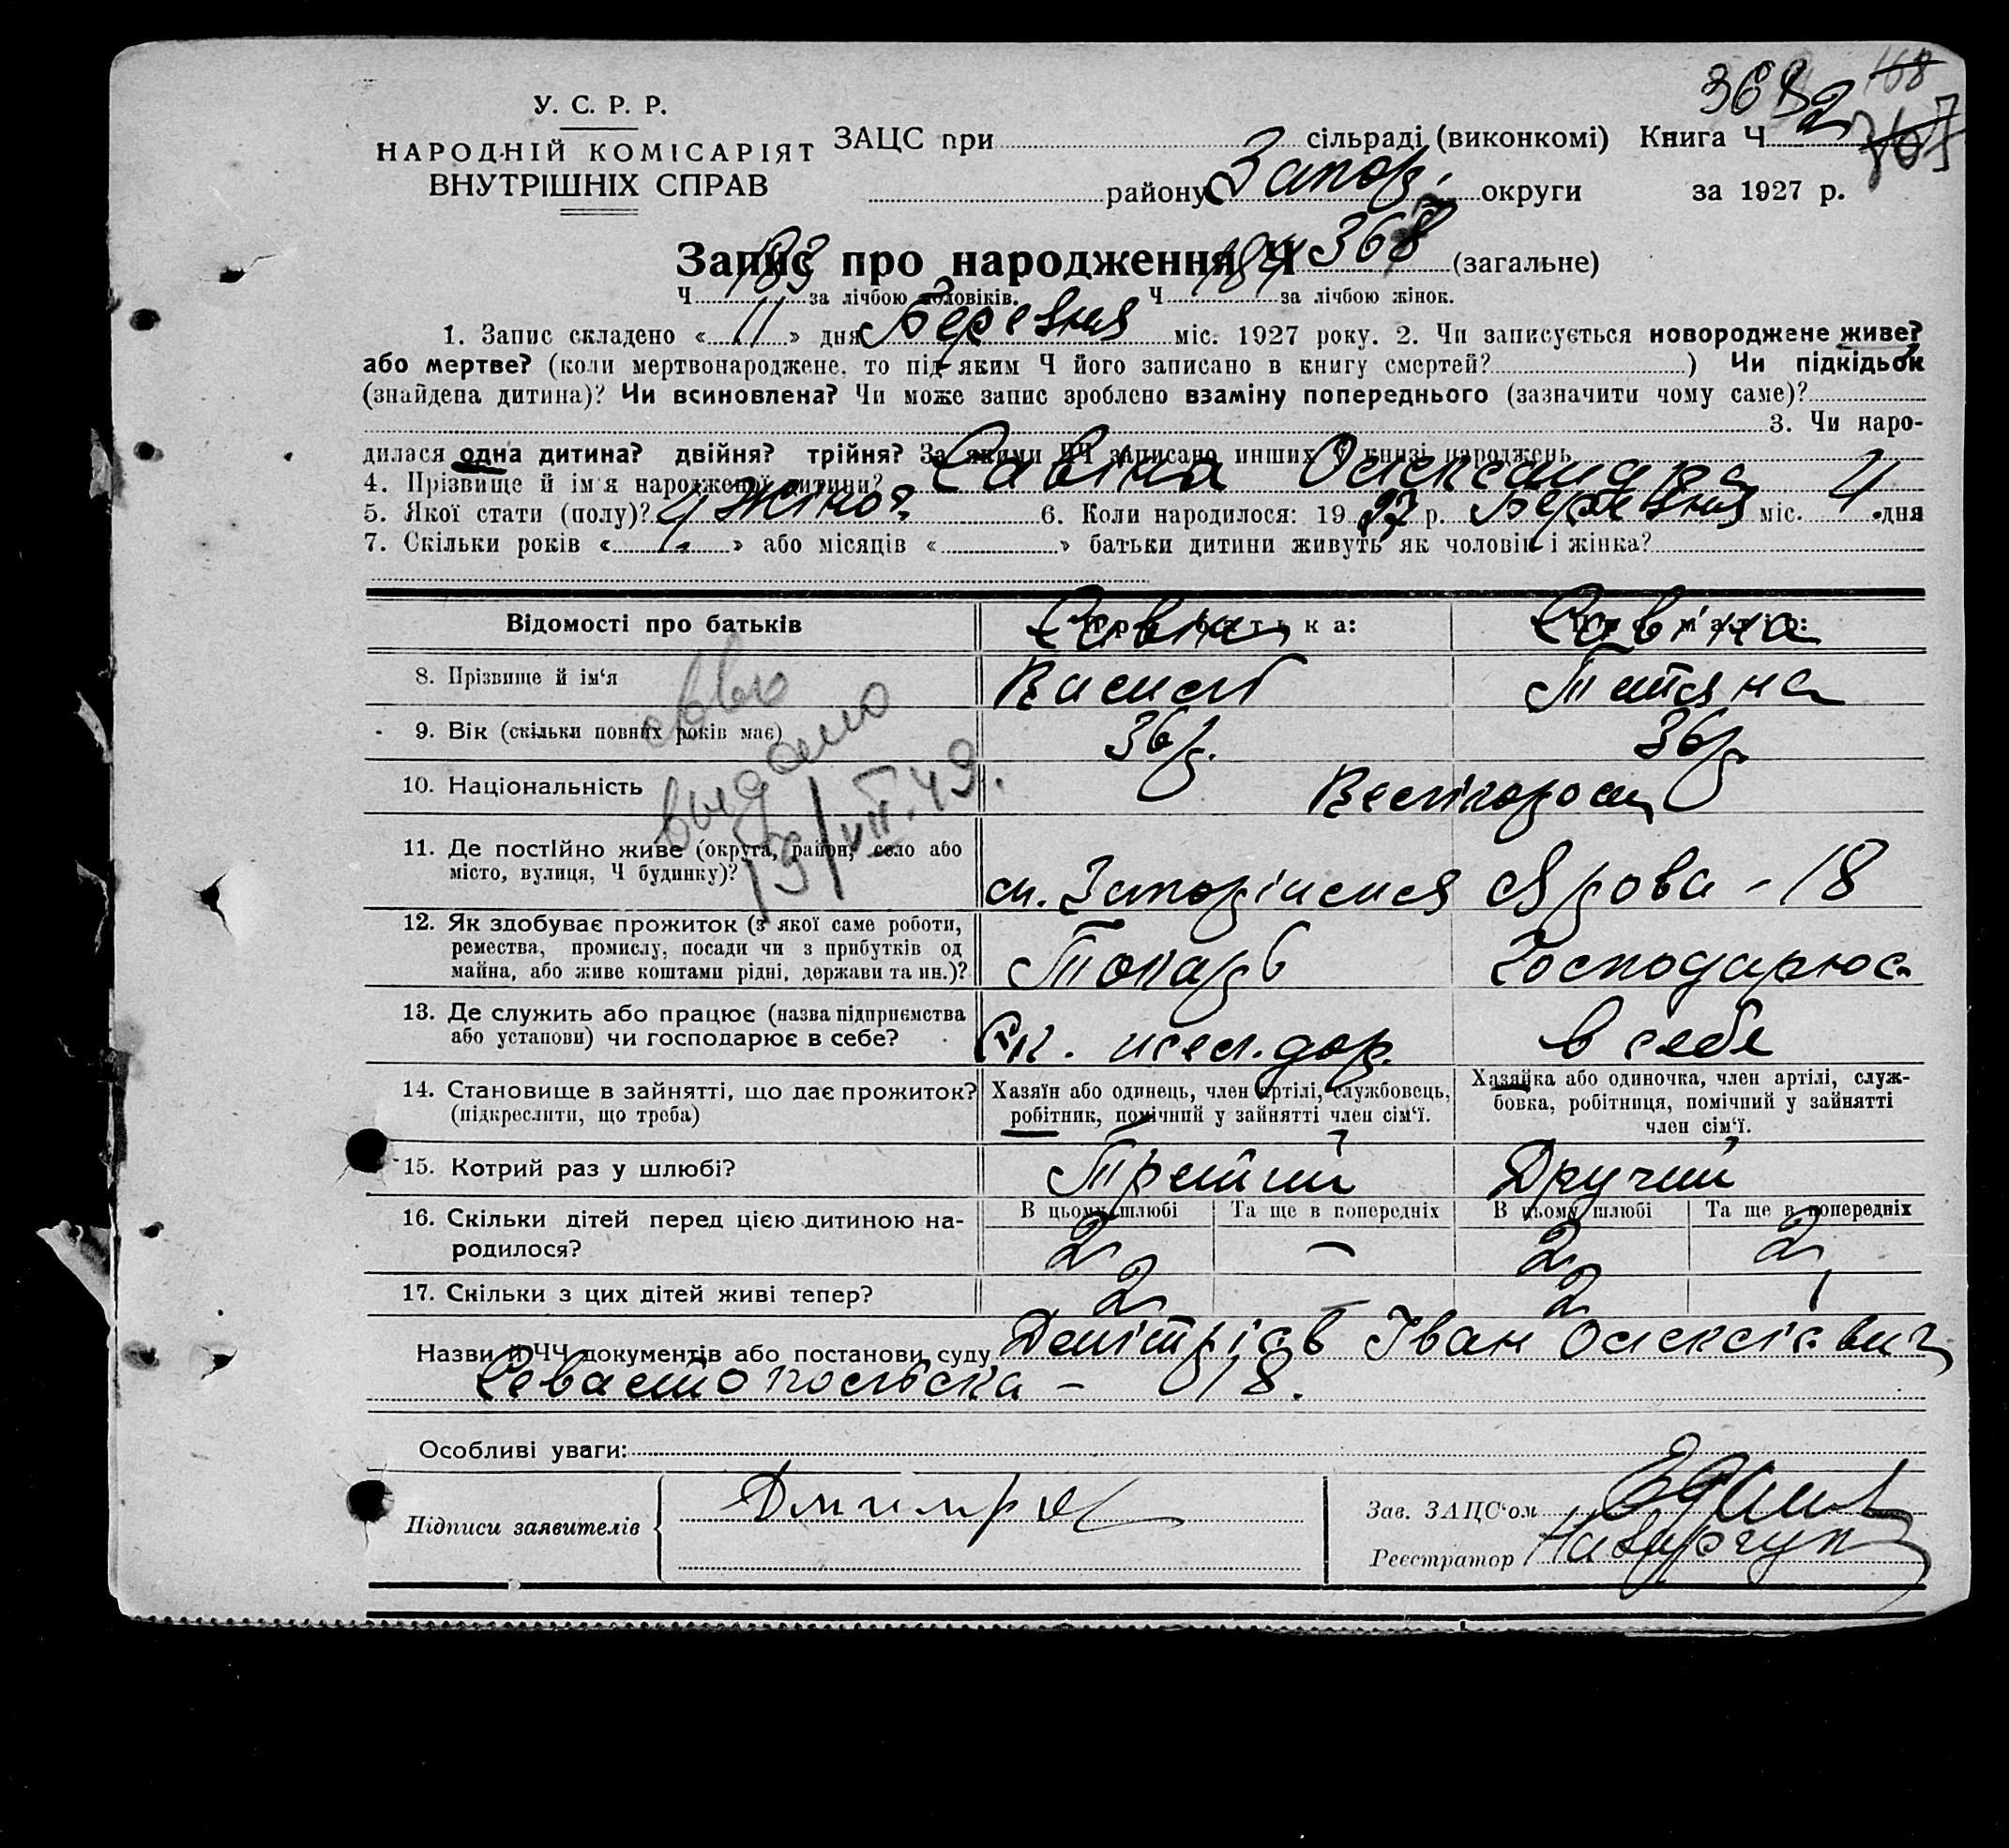 У. С. Р. Р.
НАРОДНІЙ КОМІСАРІЯТ
ВНУТРІШНІХ СПРАВ
ЗАЦС при сільраді (виконкомі) Книга Ч
району Запор. округи за 1927 р.
Запис про народження Ч 368 (загальне)
Ч 183 за лічбою чоловіків. Ч за лічбою жінок.
1. Запис складено « 11 » дня Березня міс. 1927 року. 2. Чи записується новороджене живе?
або мертве? (коли мертвонароджене, то під яким Ч його записано в книгу смертей? ) Чи підкідьок
(знайдена дитина)? Чи всиновлена? Чи може запис зроблено взаміну попереднього (зазначити чому саме)?
3. Чи наро-
дилася одна дитина? двійня? трійня? За якими ЧЧ записано инших у книзі народжень
4. Прізвище й ім'я народженої дитини? Савіна Олександра
5. Якої стати (полу)? Жіноч. 6. Коли народилося: 1927 р. Березня міс. 4 дня
7. Скільки років « 4 » або місяців « » батьки дитини живуть як чоловік і жінка?
Відомості про батьків Про батька: Савін Про матір: Савіна
8. Прізвище й ім'я Василь Титяна
9. Вік (скільки повних років має) 36 р. 36 р.
10. Національність Велікорос
11. Де постійно живе (округа, район, село або
місто, вулиця, Ч будинку)? м. Запоріжжя Ярова - 18
12. Як здобуває прожиток (з якої саме роботи,
ремества, промислу, посади чи з прибутків од
майна, або живе коштами рідні, держави та ин.)? Токарь Господарює
13. Де служить або працює (назва підприємства
або установи) чи господарює в себе? дор. в себе
14. Становище в зайнятті, що дає прожиток?
(підкреслити, що треба)
Хазяїн або одинець, член артілі, службовець,
робітник, помічний у зайнятті член сім'ї.
Хазяйка або одиночка, член артілі, служ-
бовка, робітниця, помічний у зайнятті
член сім'ї.
15. Котрий раз у шлюбі? Третій Другий
16. Скільки дітей перед цією дитиною на-
родилося?
В цьому шлюбі Та ще в попередніх В цьому шлюбі Та ще в попередніх
2 – 2 2
17. Скільки з цих дітей живі тепер? 2 – 2 1
Назви й ЧЧ документів або постанови суду Дмітрієв Іван Олексієвич
Севастопольська - 18.
видано
19/VII.49.
Особливі уваги:
Підписи заявителів Дмитрие
Зав. ЗАЦС'ом
Реєстратор